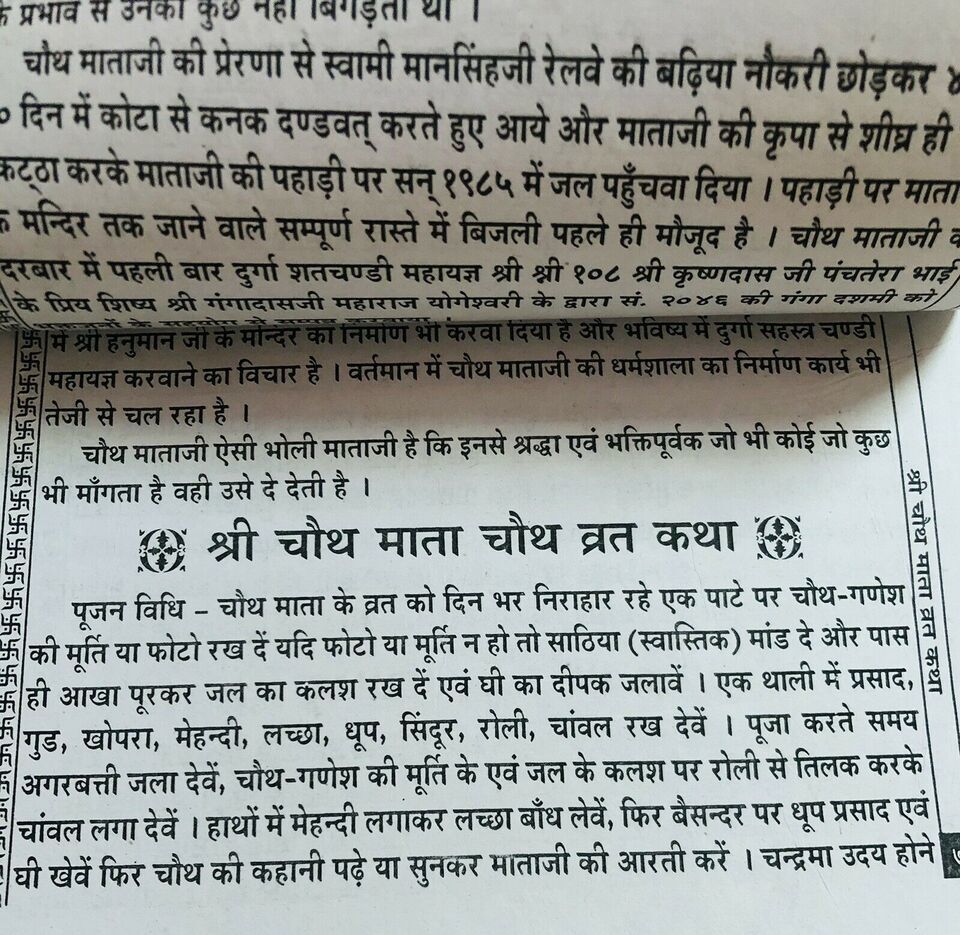 के प्रभाव से उनका कुछ नहीं बिगड़ता था ।
चौथ माताजी की प्रेरणा से स्वामी मानसिंहजी रेलवे की बढ़िया नौकरी छोड़कर ४
० दिन में कोटा से कनक दण्डवत् करते हुए आये और माताजी की कृपा से शीघ्र ही
कट्ठा करके माताजी की पहाड़ी पर सन् १९८५ में जल पहुँचवा दिया । पहाड़ी पर माता
के मन्दिर तक जाने वाले सम्पूर्ण रास्ते में बिजली पहले ही मौजूद है । चौथ माताजी के
दरबार में पहली बार दुर्गा शतचण्डी महायज्ञ श्री श्री १०८ श्री कृष्णदास जी पंचतेरा भाई
के प्रिय शिष्य श्री गंगादासजी महाराज योगेश्वरी के द्वारा सं. २०४६ की गंगा दशमी को
में श्री हनुमान जी के मन्दिर का निर्माण भी करवा दिया है और भविष्य में दुर्गा सहस्त्र चण्डी
महायज्ञ करवाने का विचार है । वर्तमान में चौथ माताजी की धर्मशाला का निर्माण कार्य भी
तेजी से चल रहा है ।
चौथ माताजी ऐसी भोली माताजी है कि इनसे श्रद्धा एवं भक्तिपूर्वक जो भी कोई जो कुछ
भी माँगता है वही उसे दे देती है ।
श्री चौथ माता चौथ व्रत कथा
पूजन विधि – चौथ माता के व्रत को दिन भर निराहार रहे एक पाटे पर चौथ-गणेश
की मूर्ति या फोटो रख दें यदि फोटो या मूर्ति न हो तो साठिया (स्वास्तिक) मांड दे और पास
ही आखा पूरकर जल का कलश रख दें एवं घी का दीपक जलावें । एक थाली में प्रसाद,
गुड, खोपरा, मेहन्दी, लच्छा, धूप, सिंदूर, रोली, चांवल रख देवें । पूजा करते समय
अगरबत्ती जला देवें, चौथ-गणेश की मूर्ति के एवं जल के कलश पर रोली से तिलक करके
चांवल लगा देवें । हाथों में मेहन्दी लगाकर लच्छा बाँध लेवें, फिर बैसन्दर पर धूप प्रसाद एवं
घी खेवें फिर चौथ की कहानी पढ़े या सुनकर माताजी की आरती करें । चन्द्रमा उदय होने
श्री चौथ माता व्रत कथा